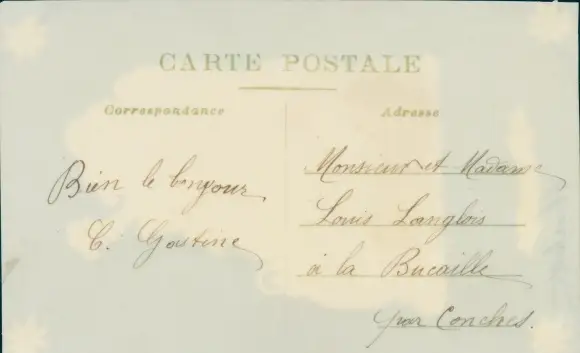 CARTE POSTALE
Correspondance
Bien le bonjour
C. Gastine
Adresse
Monsieur et Madame
Louis Langlois
à la Bucaille
par Conches.